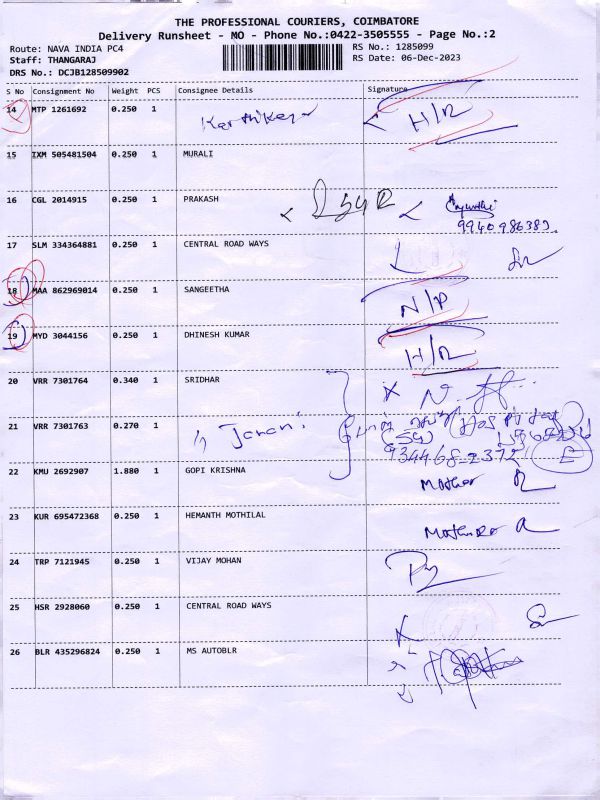 THE PROFESSIONAL COURIERS, COIMBATORE
Delivery Runsheet - MO - Phone No.:0422-3505555 - Page No.:2
Route: NAVA INDIA PC4
RS No.: 1285099
Staff: THANGARAJ
RS Date: 06-Dec-2023
DRS No.: DCJB128509902
S No Consignment No Weight PCS Consignee Details Signature
14 MTP 1261692 0.250 1 Karthikeyan H/R
15 IXM 505481504 0.250 1 MURALI
16 CGL 2014915 0.250 1 PRAKASH
17 SLM 334364881 0.250 1 CENTRAL ROAD WAYS
18 MAA 862969014 0.250 1 SANGEETHA N/P
19 MYD 3044156 0.250 1 DHINESH KUMAR H/R
20 VRR 7301764 0.340 1 SRIDHAR
21 VRR 7301763 0.270 1 Janani
22 KMU 2692907 1.880 1 GOPI KRISHNA Mother
23 KUR 695472368 0.250 1 HEMANTH MOTHILAL
24 TRP 7121945 0.250 1 VIJAY MOHAN
25 HSR 2928060 0.250 1 CENTRAL ROAD WAYS
26 BLR 435296824 0.250 1 MS AUTOBLR